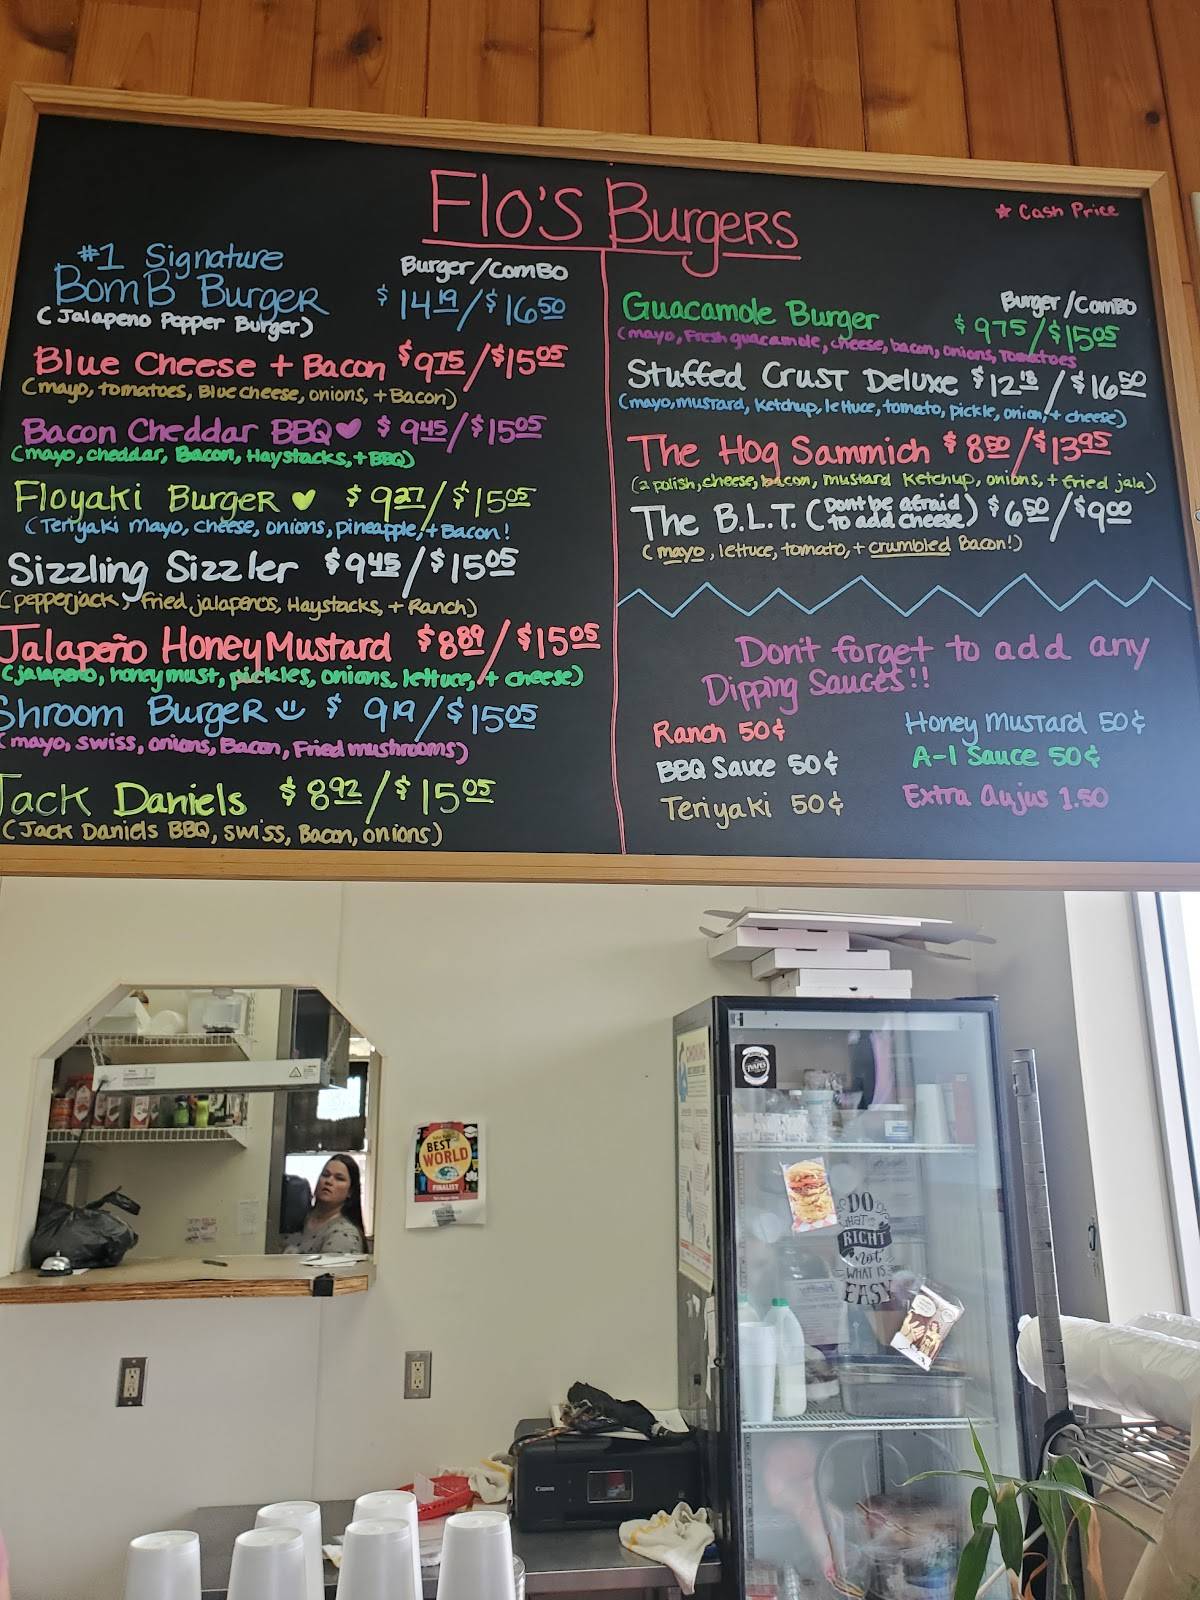 Flo's Burgers
* Cash Price
#1 Signature
BomB Burger
Burger/ComBO
$14.19/$16.50
(Jalapeno Popper Burger)
Blue Cheese + Bacon $9.75/$15.05
(mayo, tomatoes, Blue cheese, onions, + Bacon)
Bacon Cheddar BBQ ♥ $9.45/$15.05
(mayo, cheddar, Bacon, Haystacks, + BBQ)
Floyaki BurgeR ♥ $9.27/$15.05
(Teriyaki mayo, cheese, onions, pineapple, + Bacon!
Sizzling Sizzler $9.45/$15.05
(pepperjack, fried jalapenos, Haystacks, + Ranch)
Jalapeño Honey Mustard $8.89/$15.05
(jalapeno, honey must, pickles, onions, lettuce, + cheese)
Shroom BurgeR $9.19/$15.05
(mayo, swiss, onions, Bacon, Fried mushrooms)
Jack Daniels $8.92/$15.05
(Jack Daniels BBQ, swiss, Bacon, onions)
Burger/ComBO
Guacamole Burger $9.75/$15.05
(mayo, Fresh guacamole, cheese, bacon, onions, Tomatoes
Stuffed Crust Deluxe $12.18/$16.50
(mayo, mustard, Ketchup, lettuce, tomato, pickle, onion, + cheese)
The Hog Sammich $8.50/$13.95
(2 polish, cheese, bacon, mustard Ketchup, onions, + fried jala)
The B.L.T. (Dont be afraid to add cheese) $6.50/$9.00
(mayo, lettuce, tomato, + crumbled Bacon!)
Don't forget to add any
Dipping Sauces!!
Ranch 50¢
BBQ Sauce 50¢
Teriyaki 50¢
Honey Mustard 50¢
A-1 Sauce 50¢
Extra Aujus 1.50
BEST
WORLD
FINALIST
CHOKING
DO
WHAT IS
RIGHT
not
WHAT IS
EASY
Canon